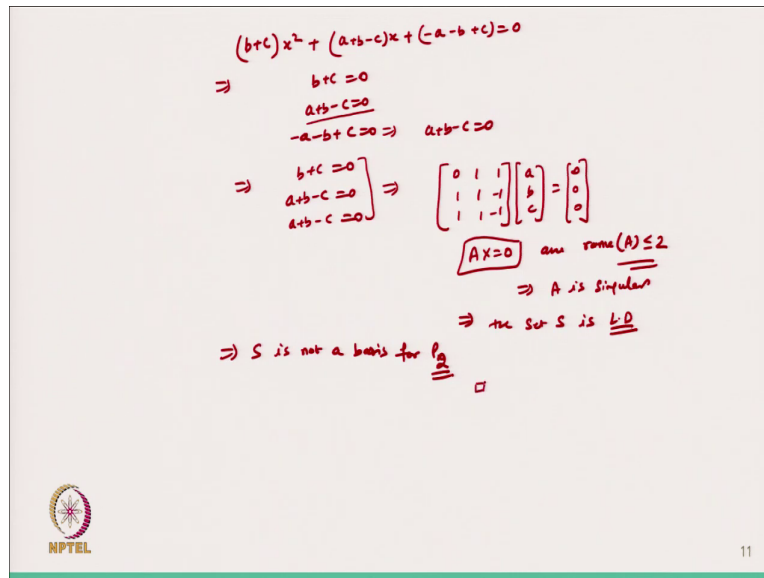 (b+c)x² + (a+b-c)x + (-a-b+c)=0
⇒ b+c=0
a+b-c=0
-a-b+c=0 ⇒ a+b-c=0
⇒ b+c=0
a+b-c=0
a+b-c=0 ⇒ [0 1 1; 1 1 -1; 1 1 -1] [a; b; c] = [0; 0; 0]
AX=0 (A) ≤ 2
⇒ A is Singular
⇒ the Set S is L.D
⇒ S is not a basis for P₂
NPTEL
11